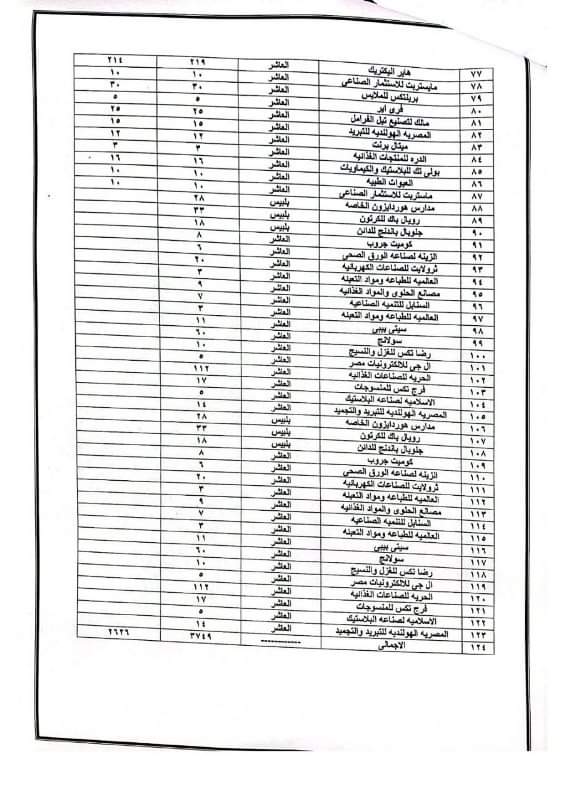 ٧٧ هاير اليكتريك العاشر ٢١٩ ٢١٤
٧٨ مايستربت للاستثمار الصناعى العاشر ١٠ ١٠
٧٩ بريلتكس للملابس العاشر ٣٠ ٣٠
٨٠ فرى اير العاشر ٥ ٥
٨١ مالك لتصنيع تيل الفرامل العاشر ٢٥ ٢٥
٨٢ المصريه الهولنديه للتبريد العاشر ١٥ ١٥
٨٣ ميتال برنت العاشر ١٢ ١٢
٨٤ الدره للمنتجات الغذائيه العاشر ٣ ٣
٨٥ بولى تك للبلاستيك والكيماويات العاشر ١٦ ١٦
٨٦ العبوات الطبيه العاشر ١٠ ١٠
٨٧ ماستربت للاستثمار الصناعى العاشر ١٠ ١٠
٨٨ مدارس هوردايزون الخاصه بلبيس ٢٨
٨٩ رويال باك للكرتون بلبيس ٣٣
٩٠ جلوبال باندنج للدائن بلبيس ١٨
٩١ كوميت جروب العاشر ٨
٩٢ الزينه لصناعه الورق الصحى العاشر ٦
٩٣ ثرولايت للصناعات الكهربائيه العاشر ٢٠
٩٤ العالميه للطباعه ومواد التعبنه العاشر ٣
٩٥ مصانع الحلوى والمواد الغذائيه العاشر ٩
٩٦ السنابل للتنميه الصناعيه العاشر ٧
٩٧ العالميه للطباعه ومواد التعبنه العاشر ٣
٩٨ سيتى بيبى العاشر ١١
٩٩ سولانج العاشر ٦٠
١٠٠ رضا تكس للغزل والنسيج العاشر ١٠
١٠١ ال جى للالكترونيات مصر العاشر ٥
١٠٢ الحريه للصناعات الغذائيه العاشر ١١٢
١٠٣ فرج تكس للمنسوجات العاشر ١٧
١٠٤ الاسلاميه لصناعه البلاستيك العاشر ٥
١٠٥ المصريه الهولنديه للتبريد والتجميد العاشر ١٤
١٠٦ مدارس هوردايزون الخاصه بلبيس ٢٨
١٠٧ رويال باك للكرتون بلبيس ٣٣
١٠٨ جلوبال باندنج للدائن بلبيس ١٨
١٠٩ كوميت جروب العاشر ٨
١١٠ الزينه لصناعه الورق الصحى العاشر ٦
١١١ ثرولايت للصناعات الكهربائيه العاشر ٢٠
١١٢ العالميه للطباعه ومواد التعبنه العاشر ٣
١١٣ مصانع الحلوى والمواد الغذائيه العاشر ٩
١١٤ السنابل للتنميه الصناعيه العاشر ٧
١١٥ العالميه للطباعه ومواد التعبنه العاشر ٣
١١٦ سيتى بيبى العاشر ١١
١١٧ سولانج العاشر ٦٠
١١٨ رضا تكس للغزل والنسيج العاشر ١٠
١١٩ ال جى للالكترونيات مصر العاشر ٥
١٢٠ الحريه للصناعات الغذائيه العاشر ١١٢
١٢١ فرج تكس للمنسوجات العاشر ١٧
١٢٢ الاسلاميه لصناعه البلاستيك العاشر ٥
١٢٣ المصريه الهولنديه للتبريد والتجميد العاشر ١٤
١٢٤ الاجمالى ------------ ٣٧٤٩ ٢٦٢٦